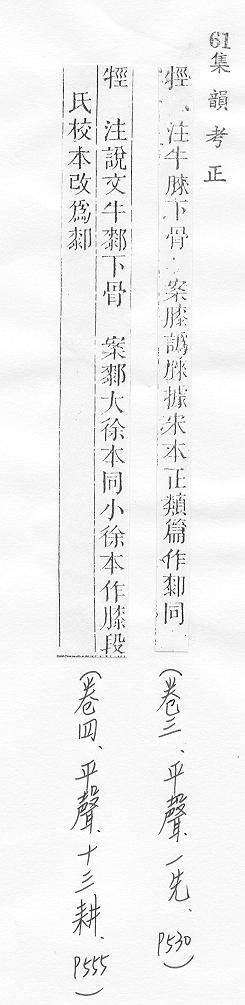 61集韻考正
牼、注牛膝下骨·案膝譌據宋本正類篇作厀同
(卷三、平聲一先、P530)
牼 注說文牛厀下骨 案厀大徐本同小徐本作膝段
氏校本改爲厀
(卷四、平聲、十三耕、P555)